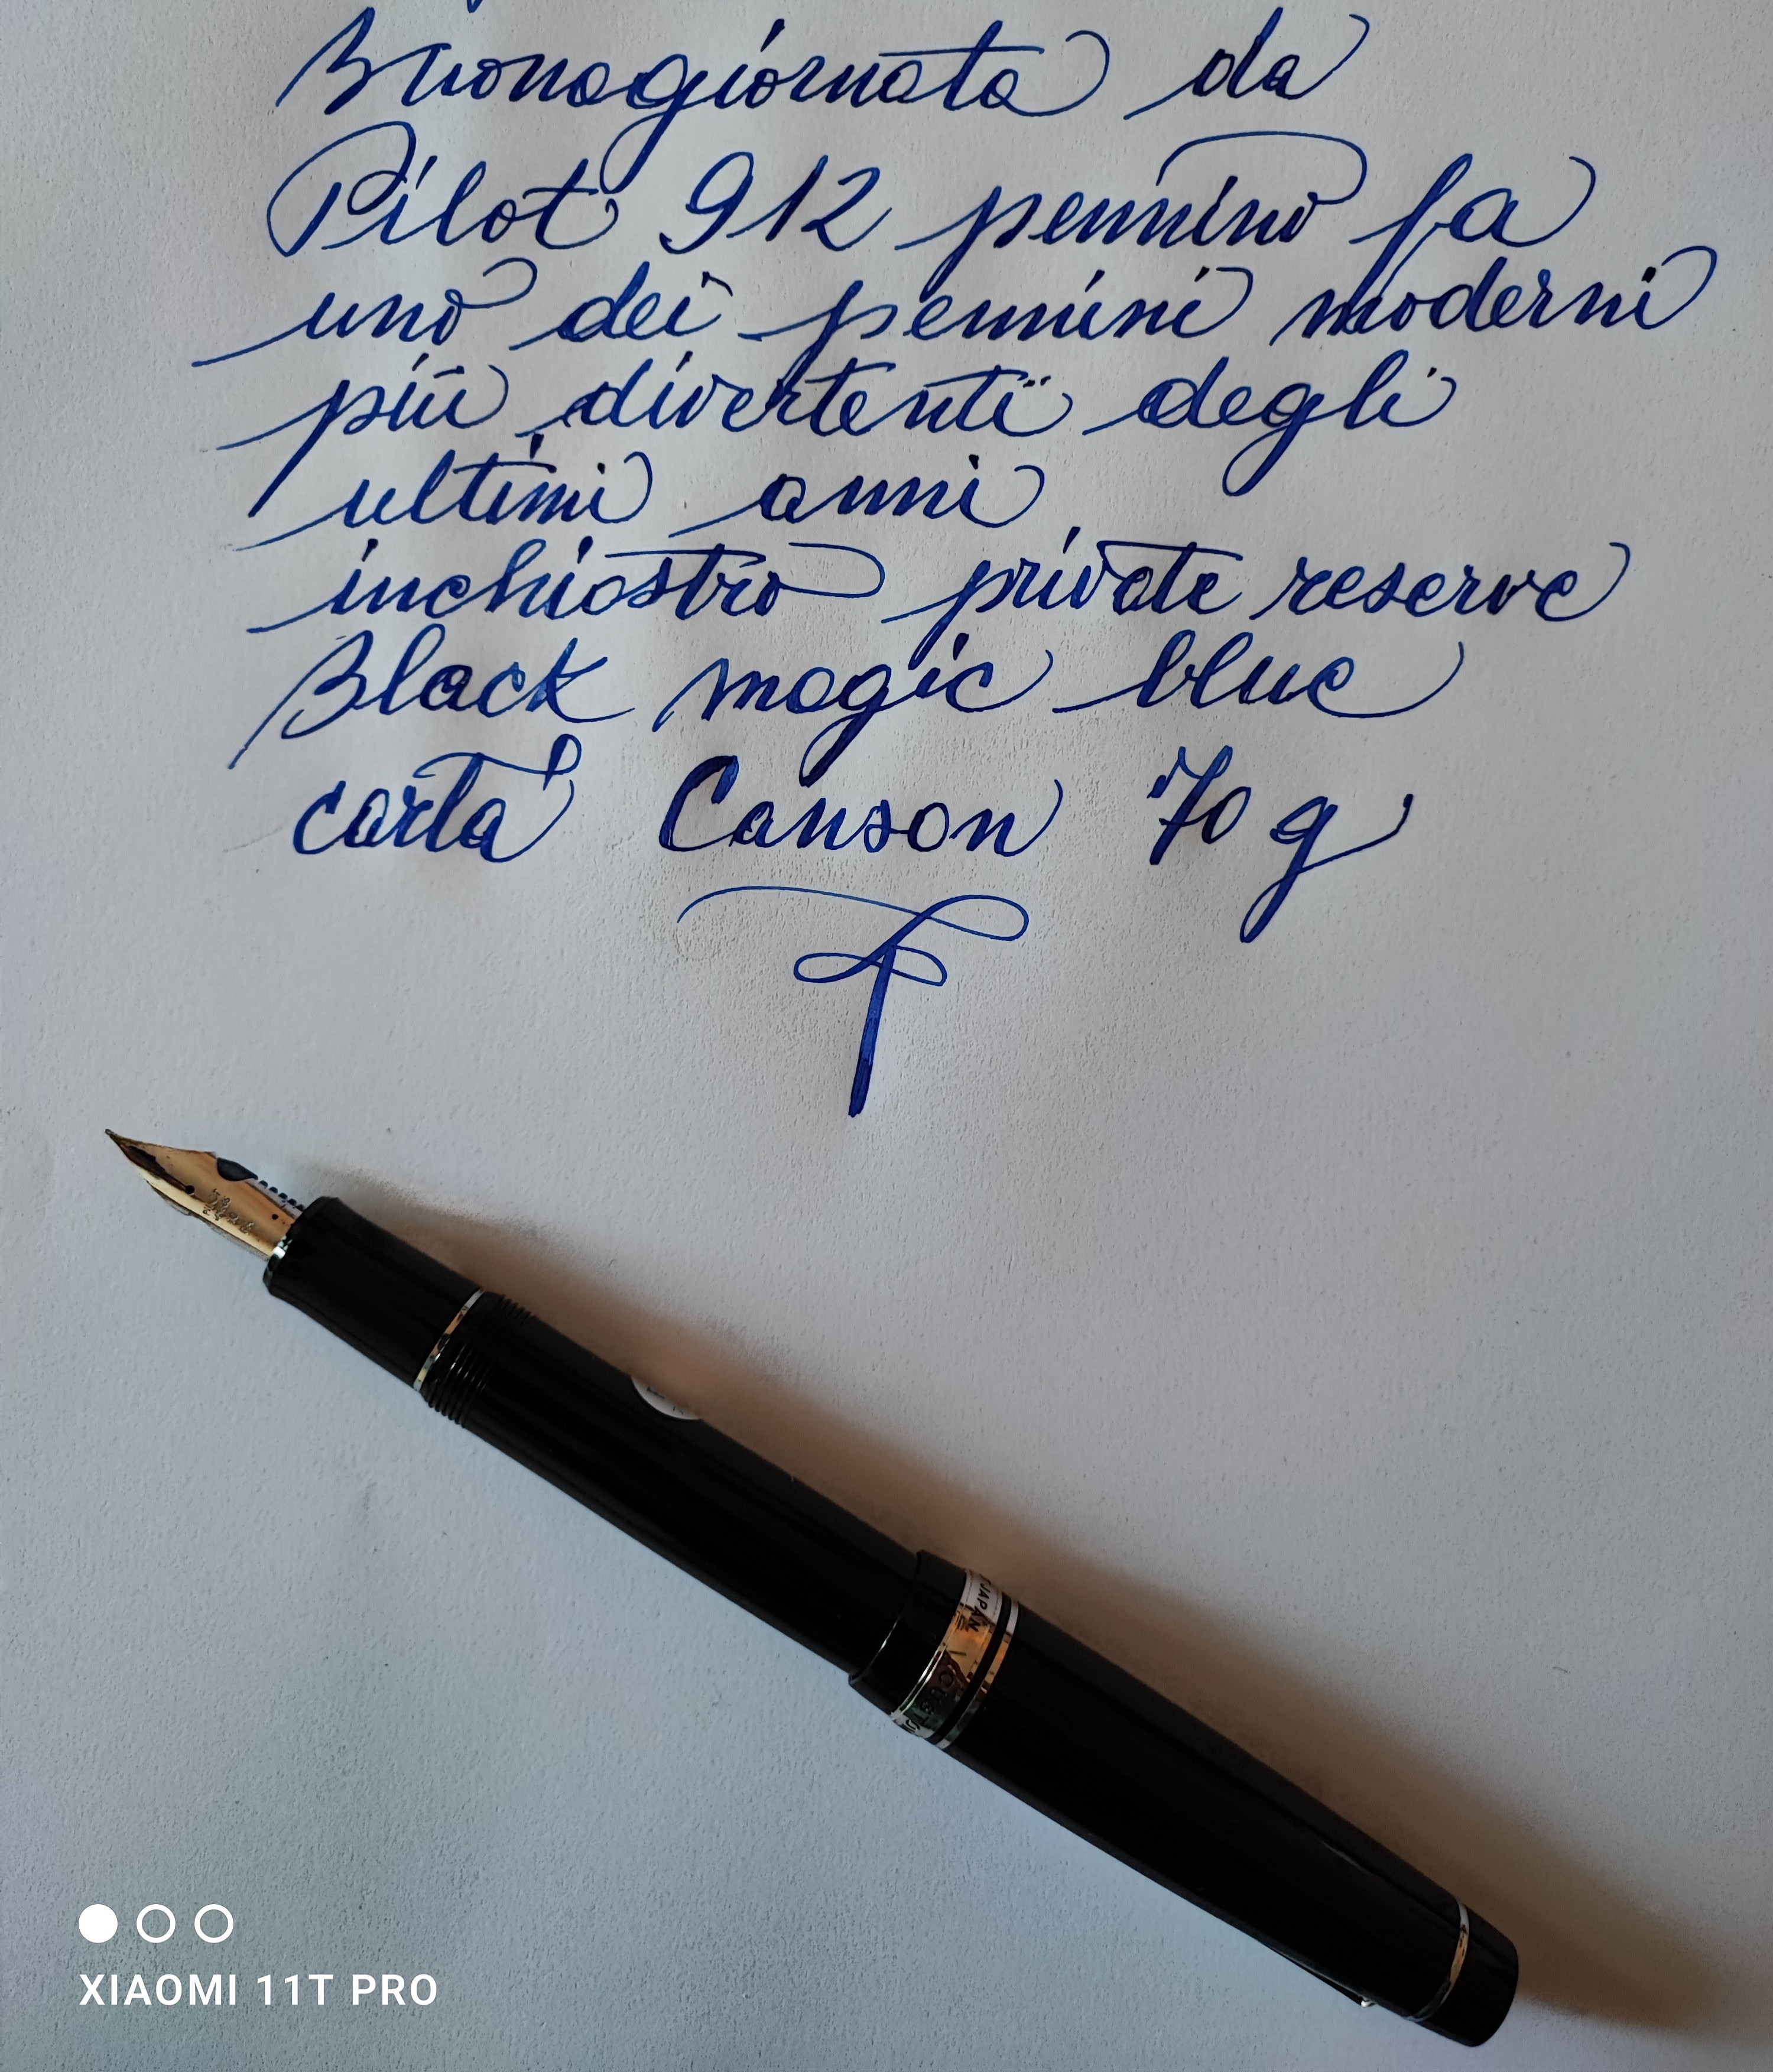 Buonagiornata da
Pilot 912 pennino fa
uno dei pennini moderni
più divertenti degli
ultimi anni
inchiostro private reserve
Black magic blue
carta Canson 70 g
JAPAN
CUSTOM
XIAOMI 11T PRO